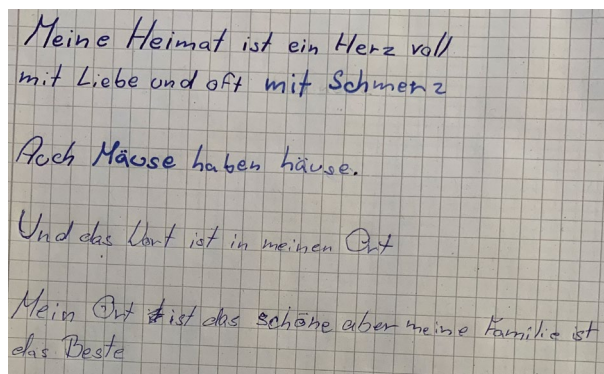 Meine Heimat ist ein Herz voll
mit Liebe und oft mit Schmerz
Auch Mäuse haben häuse.
Und das Wort ist in meinen Ort
Mein Ort ist das schöne aber meine Familie ist
das Beste